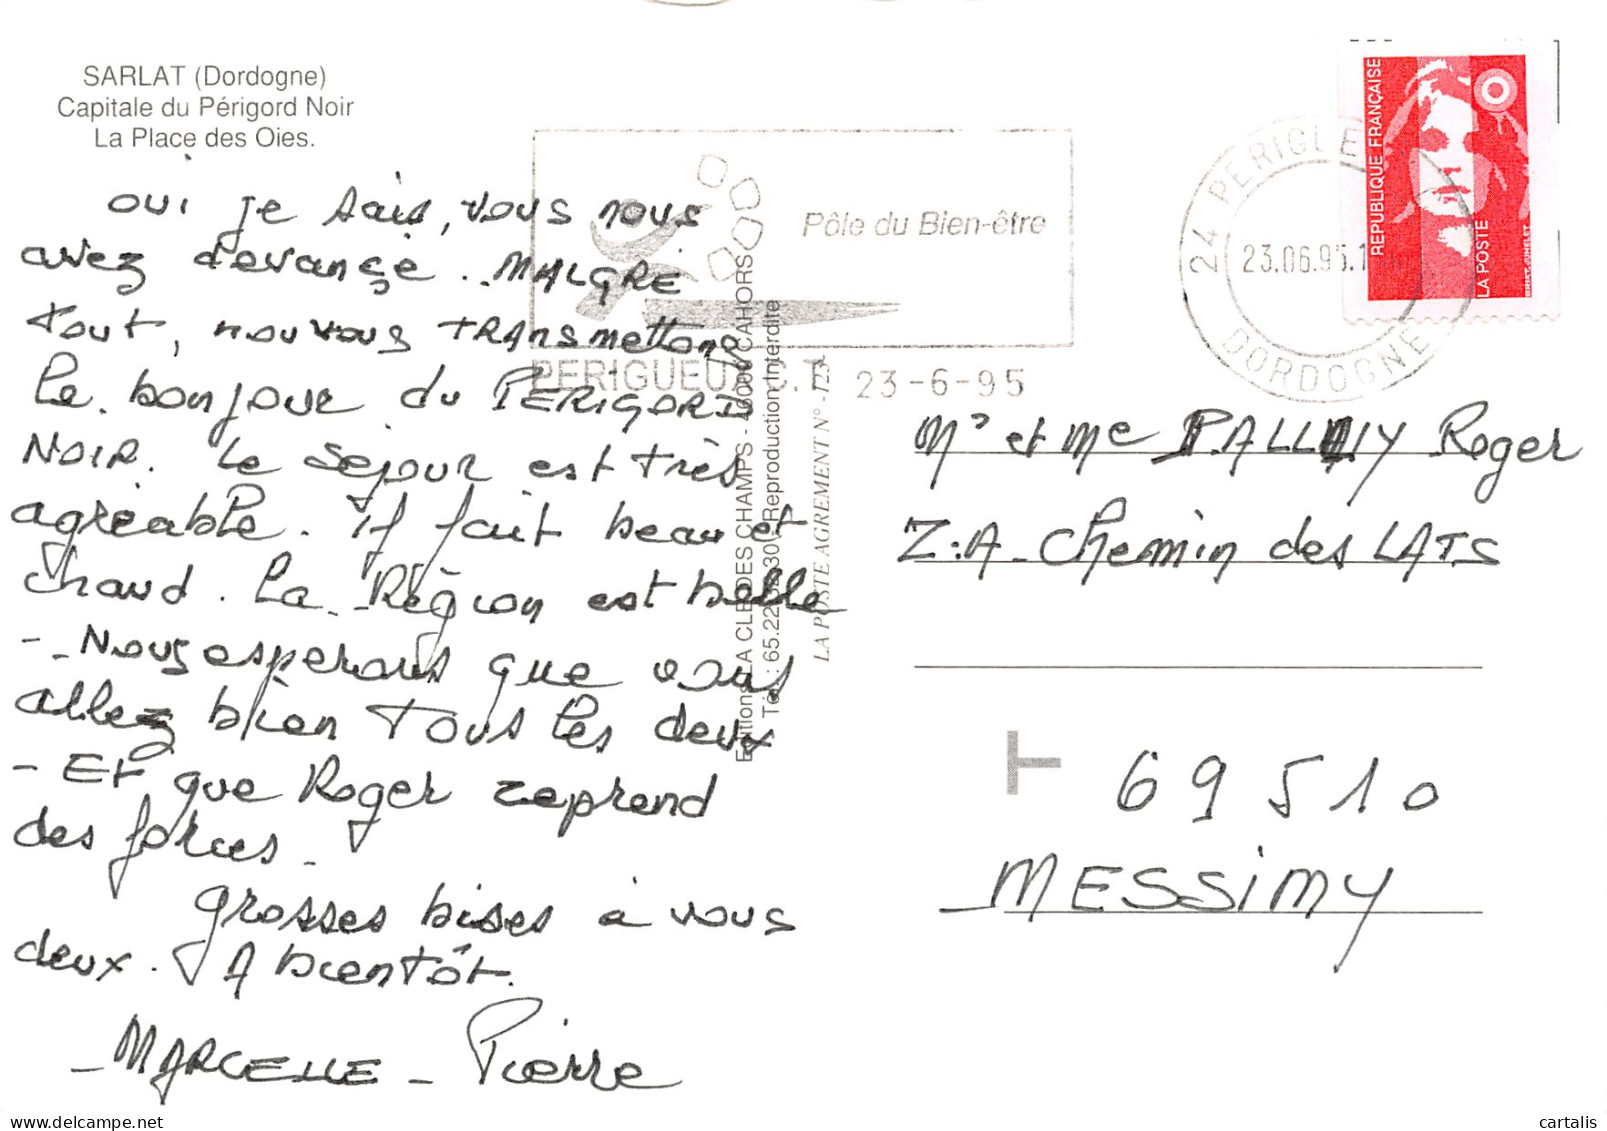 SARLAT (Dordogne)
Capitale du Périgord Noir
La Place des Oies.
oui je sais, vous nous
avez devansé. MALGRÉ
tout, nou vous TRANSmettons
le bonjour du PERIGORD
NOIR. Le Sejour est très
agréable. Il fait beau et
chaud. La Région est belle
- Nous esperons que vous
allez bien Tous les deux
- Et que Roger reprend
des forces.
grosses bises à vous
deux. A bientôt.
- MARCELLE - Pierre
Pôle du Bien-être
PERIGUEUX C.T 23-6-95
Editions LA CLE DES CHAMPS - 46000 CAHORS
Reproduction Interdite
LA POSTE AGREMENT N° -123-
24 PERIGUE
23.06.95.1
DORDOGNE
REPUBLIQUE FRANÇAISE
LA POSTE
BRIAT-JUMELET
Mr et Me PALLUY Roger
Z.A - Chemin des LATS
69510
MESSIMY
cartalis
delcampe.net